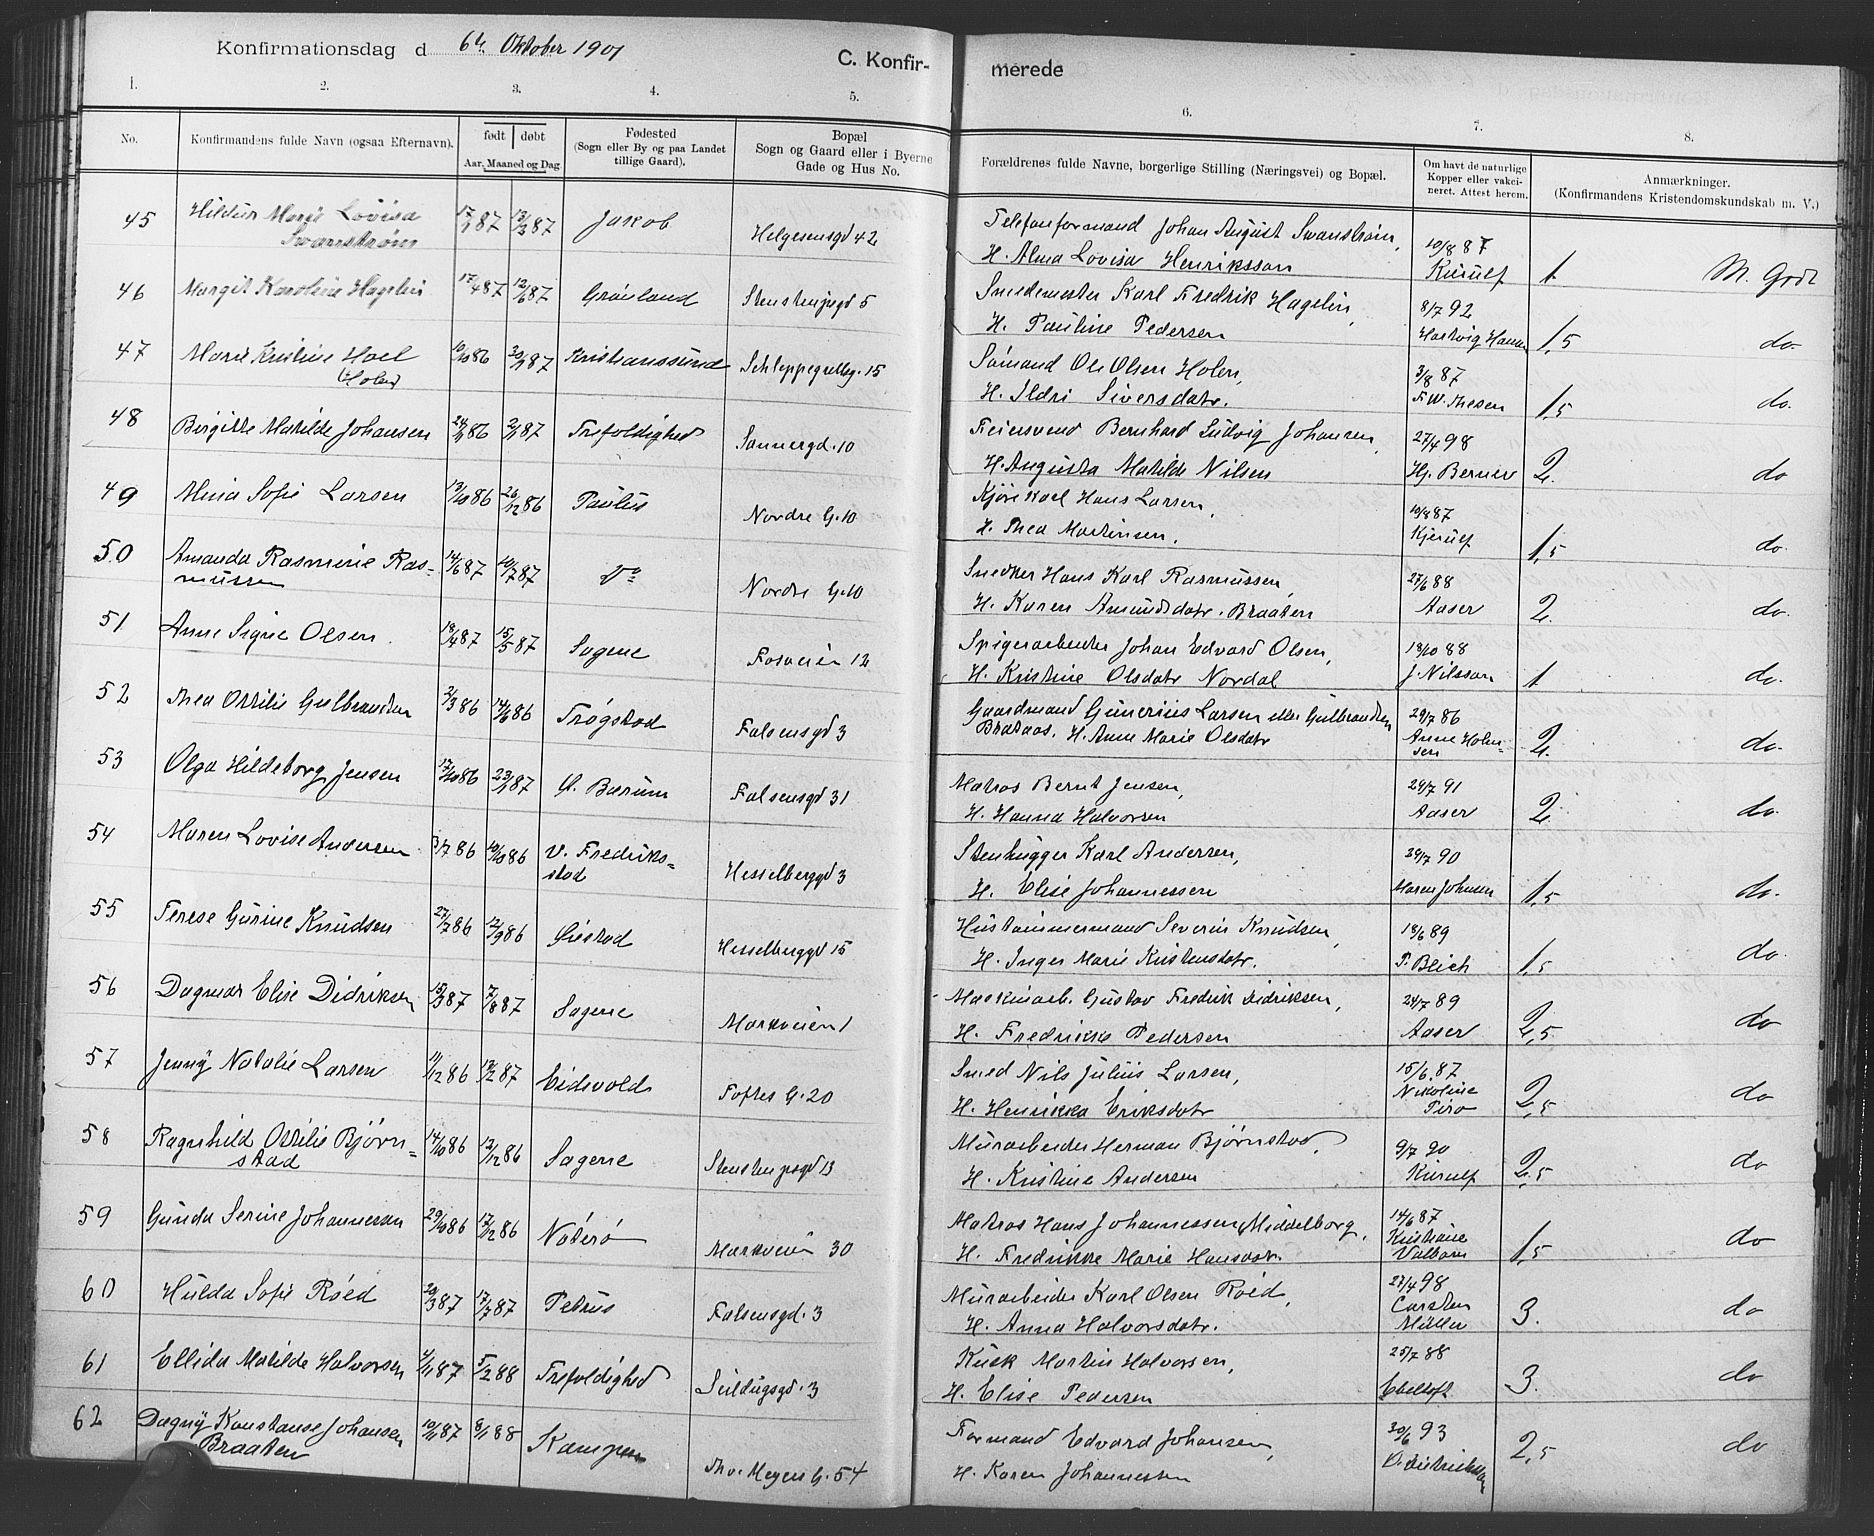 Konfirmationsdag d 6te Oktober 1901
C. Konfir- merede
1. 2. 3. 4. 5. 6. 7. 8.
No.
Konfirmandens fulde Navn (ogsaa Efternavn).
født døbt
Aar, Maaned og Dag
Fødested
(Sogn eller By og paa Landet
tillige Gaard).
Bopæl
Sogn og Gaard eller i Byerne
Gade og Hus No.
Forældrenes fulde Navne, borgerlige Stilling (Næringsvei) og Bopæl.
Om havt de naturlige
Kopper eller vakci-
neret. Attest herom.
Anmærkninger.
(Konfirmandens Kristendomskundskab m. V.)
45 Hildur Marie Lovisa 17/1 87 13/3 87 Jakob Helgesensgd 42 Telefonformand Johan August Swanstrøm, 10/8 87
Swanstrøm H. Alma Lovisa Henriksson Kierulf 1 M. Godt
46 Margit Karoline Hagelin 17/4 87 12/6 87 Grønland Stenstrupsgd 5 Smedemester Karl Fredrik Hagelin, 8/7 92
H. Pauline Pedersen Hartvig Hansen 1,5 do.
47 Marie Kristine Hoel 10/10 86 20/1 87 Kristianssund Schleppegrellsg. 15 Sømand Ole Olsen Holen, 3/8 87
(Holen) H. Ildri Siversdatr. F.W. Thesen 1,5 do.
48 Birgitte Matilde Johansen 24/11 86 2/1 87 Trefoldighed Sannergd. 10 Feiersvend Bernhard Ludvig Johansen, 27/4 98
H. Augusta Matilde Nilsen Hj. Berner 2. do
49 Alma Sofie Larsen 13/10 86 26/12 86 Paulus Nordre G. 10 Kjørekarl Hans Larsen, 10/8 87
H. Thea Martinsen. Kjerulf 1,5 do.
50 Amanda Rasmine Ras- 14/6 87 10/7 87 Do Nordre G. 10 Snedker Hans Karl Rasmussen, 27/6 88
mussen H. Karen Amundsdatr. Braaten Aaser 2. do.
51 Anne Signe Olsen. 18/4 87 15/5 87 Sagene Fosveien 12 Spigerarbeider Johan Edvard Olsen, 18/10 88
H. Kristine Olsdatr Nordal J. Nilsson 1 do.
52 Thea Ottilie Gulbrandsen 2/3 86 14/6 86 Trøgstad Falsensgd 3 Gaardmand Gunerius Larsen eller Gulbrandsen 29/7 86
Brataas. H. Anne Marie Olsdatr Anne Holm-
sen 2. do.
53 Olga Hildeborg Jensen 17/10 86 23/1 87 Ø. Bærum Falsensgd 31 Matros Bernt Jensen, 24/7 91
H. Hanna Halvorsen Aaser 2. do.
54 Maren Lovise Andersen 3/7 86 10/10 86 V. Fredriks- Hesselberggd 3 Stenhugger Karl Andersen, 24/7 90
stad H. Elise Johannessen Maren Johnsen 1,5 do.
55 Terese Gurine Knudsen 27/7 86 12/9 86 Øiestad Hesselberggd 15 Hustømmermand Severin Knudsen, 18/6 89
H. Inger Marie Kristensdatr. P. Blich 1,5 do.
56 Dagmar Elise Didriksen 15/3 87 7/8 87 Sagene Markveien 1 Maskinarb. Gustav Fredrik Didriksen, 24/7 89
H. Fredrikke Pedersen Aaser 2,5 do
57 Jenny Natalie Larsen 11/12 86 13/2 87 Eidsvold Toftes G. 20 Smed Nils Julius Larsen, 15/6. 87
H. Henrikka Eriksdatr Nikoline
Tiro 2,5 do
58 Ragnhild Ottilie Bjørn- 14/10 86 12/12 86 Sagene Stenstrupsgd 13 Murarbeider Herman Bjørnstad, 9/7 90
stad H. Kristine Andersen Kierulf 2,5 do
59 Gunda Serine Johannesen 29/10 86 17/12 86 Nøterø Markveien 30 Matros Hans Johannessen Middelborg, 14/6 87
H. Fredrikke Marie Hansdatr. Kristiane
Valbom 1,5 do
60 Hulda Sofie Røed 20/3 87 17/7 87 Petrus Falsensgd. 3 Murarbeider Karl Olsen Røed, 27/4 98
H. Anna Halvorsdatr. Carsten
Müller 3. do
61 Ellida Matilde Halvorsen 4/11 87 5/2 88 Trefoldighed Seildugsgd. 3 Kusk Martin Halvorsen, 25/7 88
H. Elise Pedersen Ebeltoft 3. do
62 Dagny Konstanse Johansen 10/11 87 8/1 88 Kampen Thv. Meyers G. 54 Formand Edvard Johansen, 30/6 93
Braaten H. Karen Johannessen 2,5 do